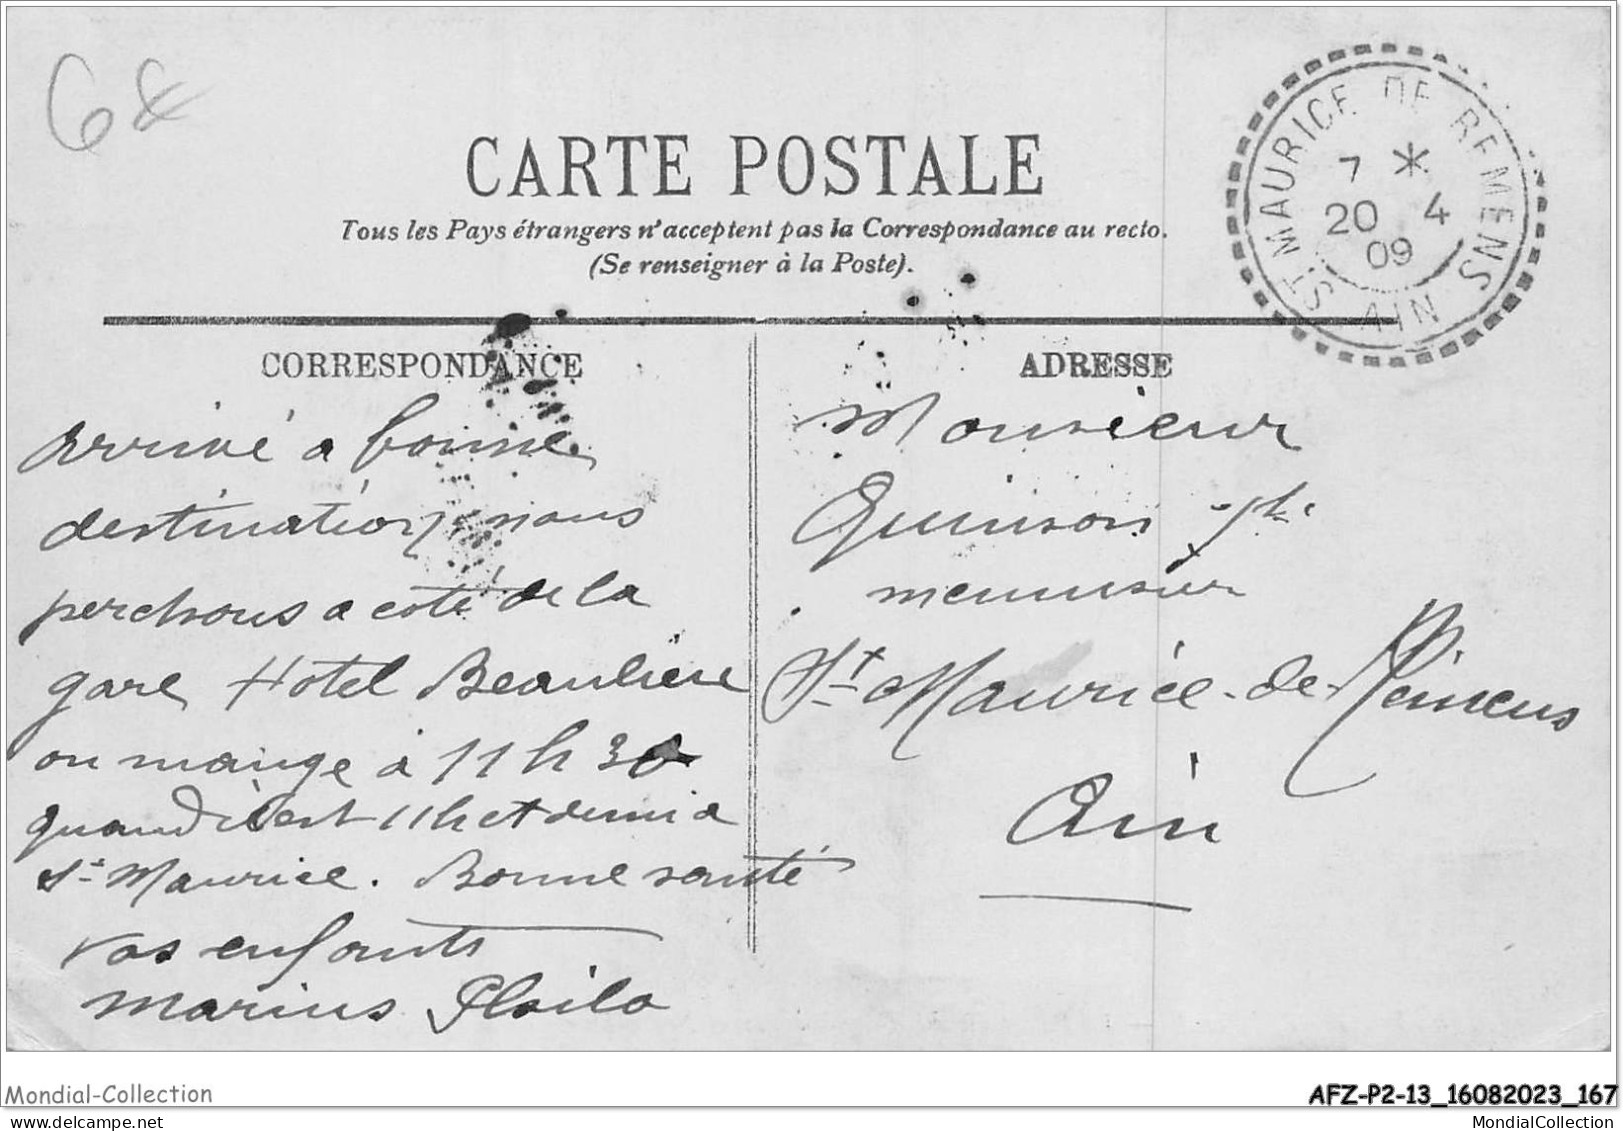 6
CARTE POSTALE
Tous les Pays étrangers n'acceptent pas la Correspondance au recto.
(Se renseigner à la Poste).
ST MAURICE DE REMENS
7 *
20 4
09
AIN
CORRESPONDANCE
arrivé a bonne
destination nous
perchons a coté de la
gare Hotel Beaulieu
on mange à 11 h 30
quand il est 11h et demi a
St Maurice. Bonne santé
vos enfants
Marius Philo
ADRESSE
Monsieur
Quinson
menuisier
St Maurice-de-Rémens
Ain
Mondial-Collection
AFZ-P2-13_16082023_167
mondial-collection.com
MondialCollection